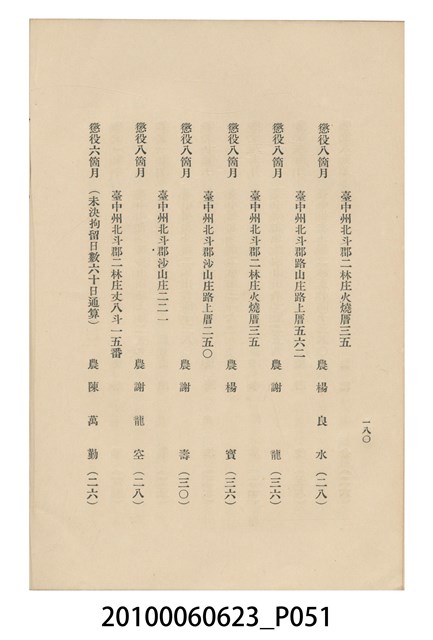 一八〇
臺中州北斗郡二林庄火燒厝三五
懲役八箇月　農　楊良水（二八）
臺中州北斗郡路山庄路上厝五六二
懲役八箇月　農　謝龍（三六）
臺中州北斗郡二林庄火燒厝三五
懲役八箇月　農　楊寶（三六）
臺中州北斗郡沙山庄路上厝二五〇
懲役八箇月　農　謝壽（三〇）
臺中州北斗郡沙山庄二二一
懲役八箇月　農　謝龍空（二八）
臺中州北斗郡二林庄丈八斗一五番
懲役六箇月（未決拘留日數六十日通算）　農　陳萬勤（二六）
20100060623_P051